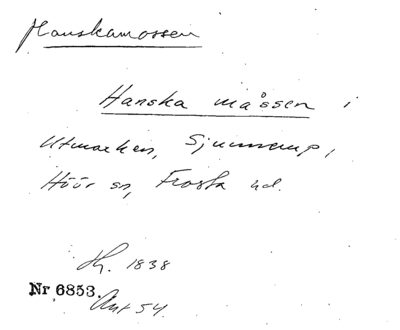 Hanskamossen
Hanska måssen i
Utmarken, Sjunnerup,
Höör sn, Frosta hd.
Hy. 1838
Nr 6853.
Ant 54.